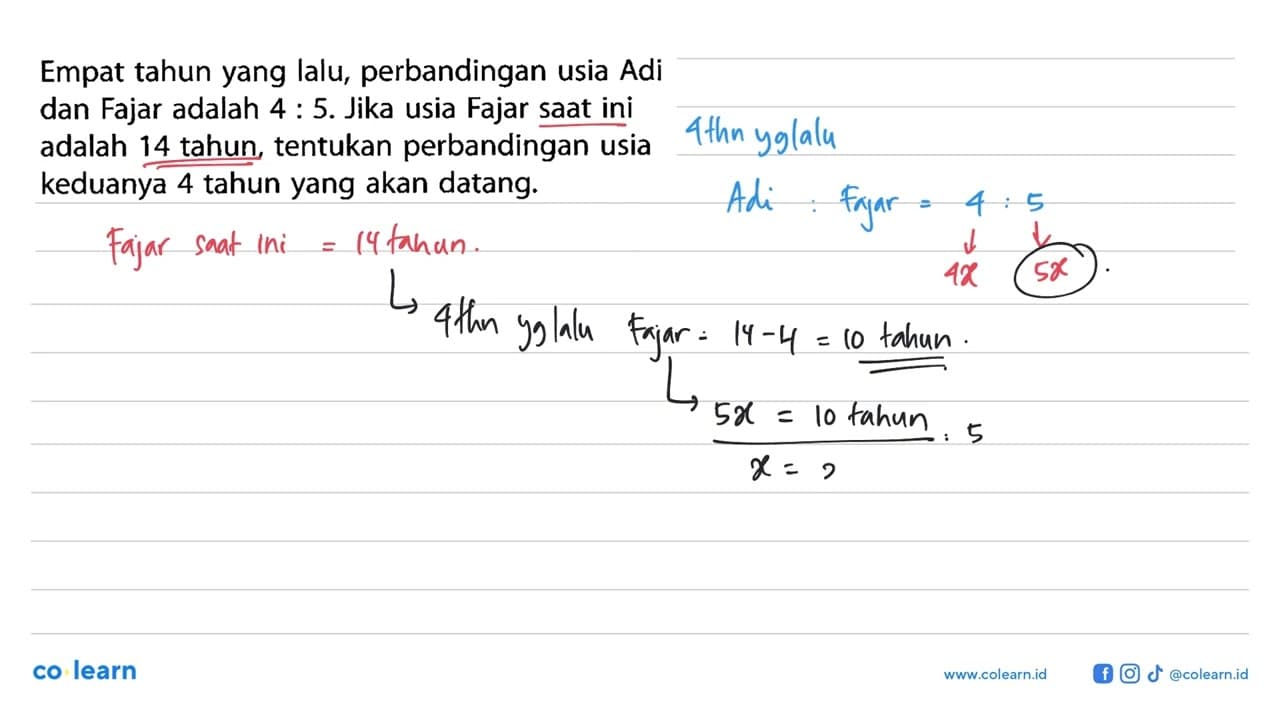 Empat tahun yang lalu, perbandingan usia Adi
dan Fajar adalah 4 : 5. Jika usia Fajar saat ini
adalah 14 tahun, tentukan perbandingan usia
keduanya 4 tahun yang akan datang.
4thn yg lalu
Adi : Fajar = 4 : 5
4x 5x .
Fajar saat ini = 14 tahun.
4thn yg lalu Fajar = 14 - 4 = 10 tahun.
5x = 10 tahun : 5
x = 2
co learn
www.colearn.id
@colearn.id